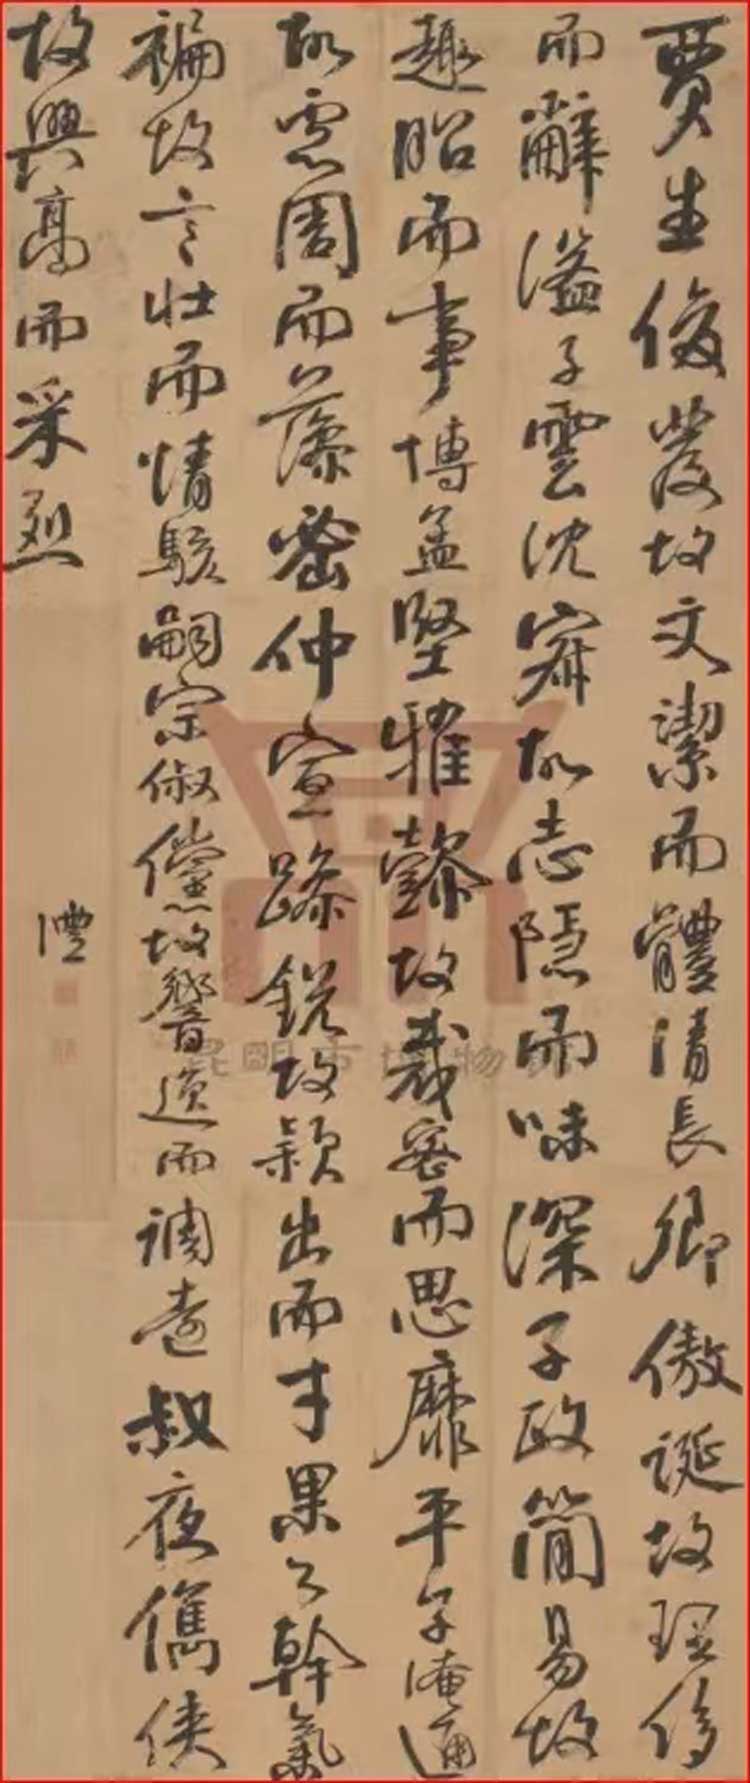 賈生俊發故文潔而體清長卿傲誕故理侈
而辭溢子雲沈寂故志隱而味深子政簡易故
趣昭而事博孟堅雅懿故裁密而思靡平子淹通
故慮周而藻密仲宣躁銳故穎出而才果公幹氣
褊故言壯而情駭嗣宗俶儻故響逸而調遠叔夜儁俠
故興高而采烈
澧
昆明市博物